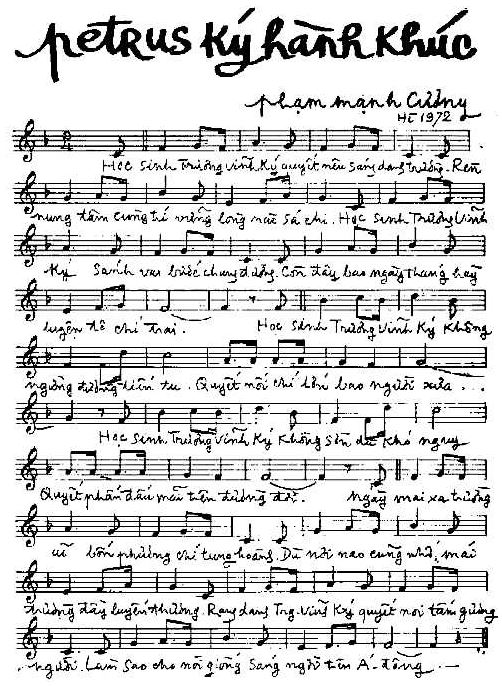 Petrus Ký hành khúc
phạm mạnh Cương
HÈ 1972
Học Sinh Trương Vĩnh Ký quyết nêu sáng danh trường. Rèn
nung tâm cùng trí vững lòng sá chi. Học Sinh Trương Vĩnh
Ký Sánh vai bước chung đường. Còn đây bao ngày tháng hãy
luyện để chí trai. Học Sinh Trương Vĩnh Ký Không
ngừng đường tiến tu. Quyết nối chí lớn bao người xưa..
Học Sinh Trương Vĩnh Ký Không sờn dù khó nguy
Quyết phấn đấu mãi trên đường đời. ngày mai xa trường
cũ bốn phương chí tung hoành. Dù nơi nao cũng nhớ mái
trường đầy luyến thương. Rạng danh Trg. Vĩnh Ký quyết noi tấm gương
người. Làm sao cho nòi giống sáng ngời trên Á-đông.